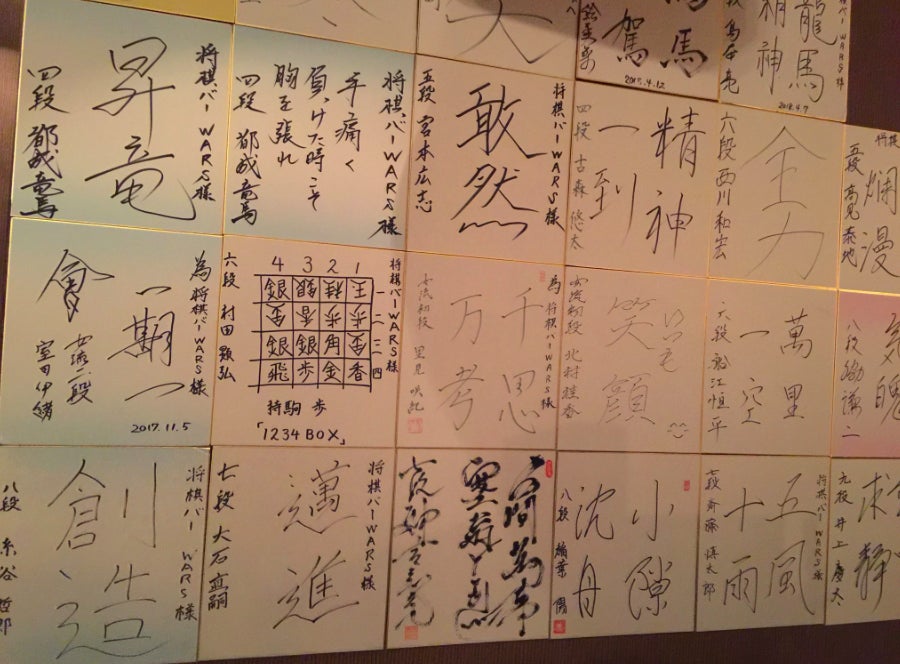 馬
駕
2015.4.12
将棋バーWARS様
龍馬
精神
2018.4.7
将棋バーWARS様
昇竜
四段 都成竜馬
将棋バーWARS様
手痛く
負けた時こそ
胸を張れ
四段 都成竜馬
将棋バーWARS様
敢然
五段 宮本広志
精神
一到
四段 古森悠太
全力
六段 西川和宏
将棋
爛漫
五段 高見泰地
為 将棋バーWARS様
一期一
會
女流二段
室田伊緒
2017.11.5
将棋バーWARS様
4 3 2 1
銀 銀 桂 王 一
金 香 歩 歩 二
銀 銀 角 金 三
飛 歩 金 香 四
持駒 歩
「1234BOX」
六段 村田顕弘
為 将棋バーWARS様
千思
万考
女流初段 里見咲紀
いつも
笑顔
女流初段 北村桂香
萬里
一空
六段 船江恒平
気魄
八段
将棋バー WARS様
創造
八段 糸谷哲郎
将棋バーWARS様
邁進
七段 大石直嗣
小隙
沈舟
八段 稲葉陽
将棋バー WARS様
五風
十雨
七段 斎藤慎太郎
求静
九段 井上慶太